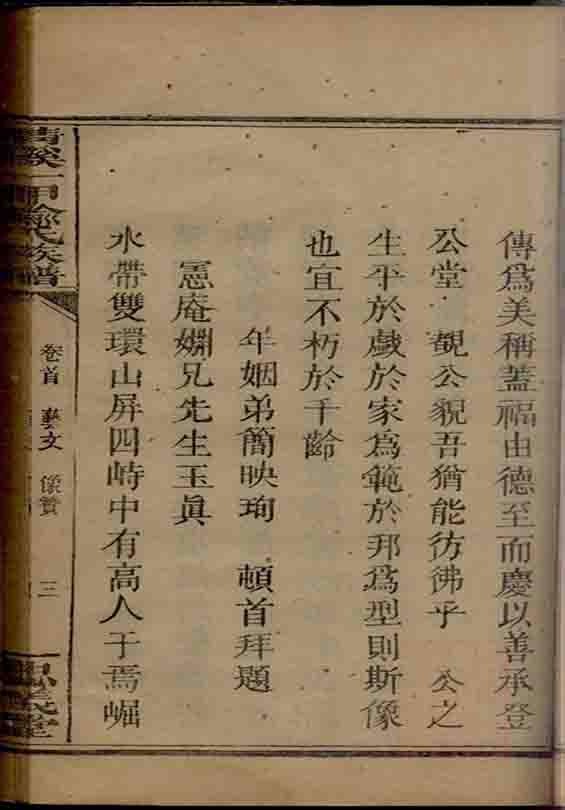 傳爲美稱蓋福由德至而慶以善承登
公堂　覩公貌吾猶能彷彿乎　公之
生平於戲於家爲範於邦爲型則斯像
也宜不朽於千齡
年姻弟簡映珣　頓首拜題
憲庵嫻兄先生玉眞
水帶雙環山屏四峙中有高人于焉崛
清溪一甲俞氏族譜
卷首　藝文　像贊　三